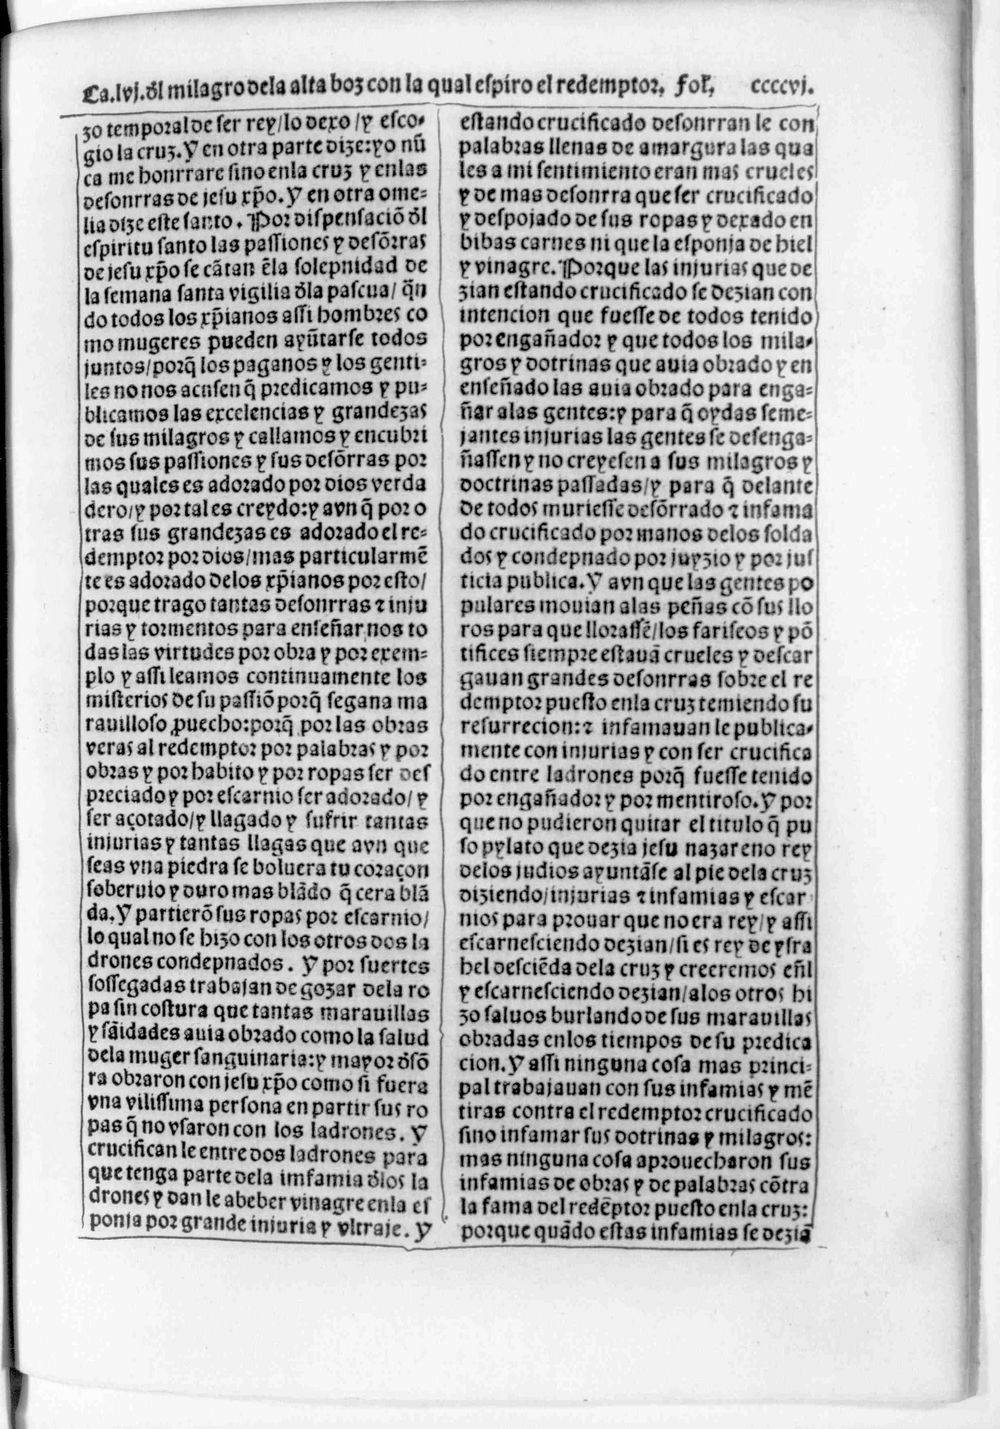 Ca.lvj.ďl milagro dela alta boz con la qual espiro el redemptor, fol. ccccvj.
zo temporal de ser rey/lo dexo/y esco-
gio la cruz. Y en otra parte dize: yo nū
ca me honrrare sino enla cruz y enlas
desonrras de jesu xp̄o. Y en otra ome-
lia dize este santo. Por dispensaciō dl̄
espiritu santo las passiones y desōrras
de jesu xp̄o se cātan ēla solepnidad de
la semana santa vigilia dl̄a pascua/ q̄n
do todos los xp̄ianos assi hombres co
mo mugeres pueden ayūtarse todos
juntos/porq̄ los paganos y los genti-
les no nos acusen q̄ predicamos y pu-
blicamos las excelencias y grandezas
de sus milagros y callamos y encubri
mos sus passiones y sus desōrras por
las quales es adorado por dios verda
dero/y por tal es creydo: y avn q̄ por o
tras sus grandezas es adorado el re-
demptor por dios/mas particularmē
te es adorado delos xp̄ianos por esto/
porque trago tantas desonrras ⁊ inju
rias y tormentos para enseñar nos to
das las virtudes por obra y por exem-
plo y assi leamos continuamente los
misterios de su passiō porq̄ se gana ma
rauilloso ꝓuecho: porq̄ por las obras
veras al redemptor por palabras y por
obras y por habito y por ropas ser des
preciado y por escarnio ser adorado/ y
ser açotado/y llagado y sufrir tantas
injurias y tantas llagas que avn que
seas vna piedra se boluera tu coraçon
soberuio y duro mas blādo q̄ cera blā
da. Y partierō sus ropas por escarnio/
lo qual no se hizo con los otros dos la
drones condepnados. Y por suertes
sossegadas trabajan de gozar dela ro
pa sin costura que tantas marauillas
y sāidades auia obrado como la salud
dela muger sanguinaria: y mayor dsō
ra obraron con jesu xp̄o como si fuera
vna vilissima persona en partir sus ro
pas q̄ no vsaron con los ladrones. Y
crucifican le entre dos ladrones para
que tenga parte dela imfamia dl̄os la
drones y dan le a beber vinagre enla es
ponja por grande injuria y vltraje. Y
estando crucificado desonrran le con
palabras llenas de amargura las qua
les a mi sentimiento eran mas crueles
y de mas desonrra que ser crucificado
y despojado de sus ropas y dexado en
bibas carnes ni que la esponja de hiel
y vinagre. Porque las injurias que de
zian estando crucificado se dezian con
intencion que fuesse de todos tenido
por engañador y que todos los mila-
gros y dotrinas que auia obrado y en
enseñado las auia obrado para enga-
ñar a las gentes: y para q̄ oydas seme-
jantes injurias las gentes se desenga-
ñassen y no creyesen a sus milagros y
doctrinas passadas/y para q̄ delante
de todos muriesse desōrrado ⁊ infama
do crucificado por manos delos solda
dos y condepnado por juyzio y por jus
ticia publica. Y avn que las gentes po
pulares mouian a las peñas cō sus llo
ros para que llorassē/los fariseos y pō
tifices siempre estauā crueles y descar
gauan grandes desonrras sobre el re
demptor puesto enla cruz temiendo su
resurrecion: ⁊ infamauan le publica-
mente con injurias y con ser crucifica
do entre ladrones porq̄ fuesse tenido
por engañador y por mentiroso. Y por
que no pudieron quitar el titulo q̄ pu
so pylato que dezia jesu nazareno rey
delos judios ayuntāse al pie dela cruz
diziendo/injurias ⁊ infamias y escar
nios para prouar que no era rey/y assi
escarnesciendo dezian/si es rey de ysra
hel desciēda dela cruz y creeremos eñl
y escarnesciendo dezian/a los otros hi
zo saluos burlando de sus marauillas
obradas enlos tiempos de su predica
cion. Y assi ninguna cosa mas princi-
pal trabajauan con sus infamias y mē
tiras contra el redemptor crucificado
sino infamar sus dotrinas y milagros:
mas ninguna cosa aprouecharon sus
infamias de obras y de palabras cōtra
la fama del redēptor puesto enla cruz:
porque quādo estas infamias se deziā